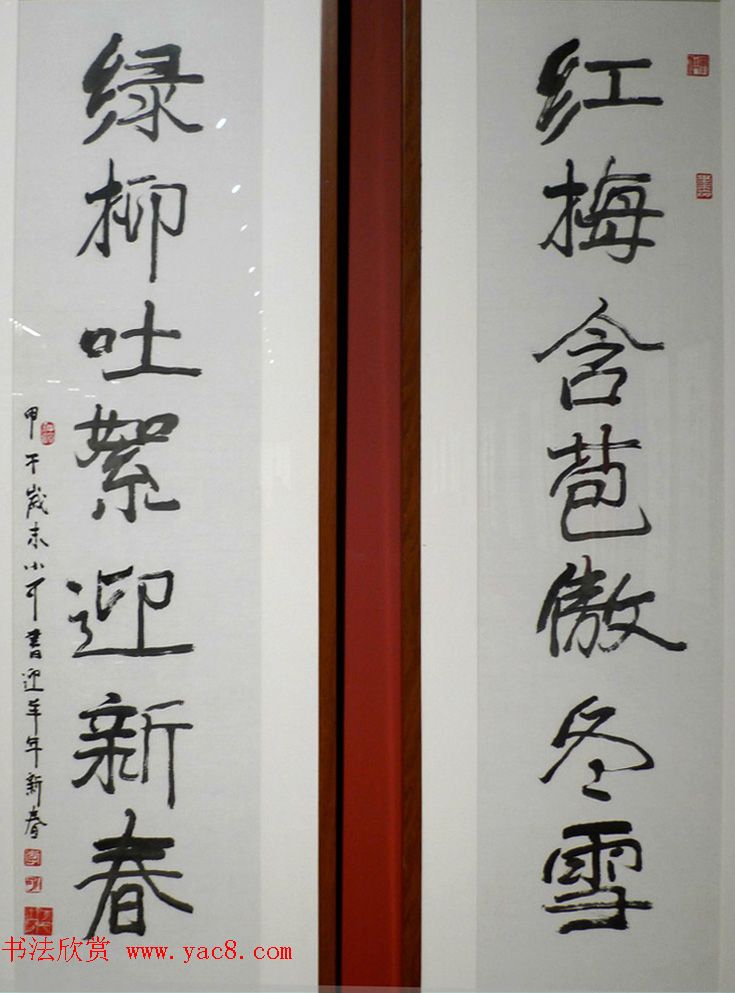 红梅含苞傲冬雪
绿柳吐絮迎新春
甲午岁末小可书迎羊年新春
书法欣赏 www.yac8.com